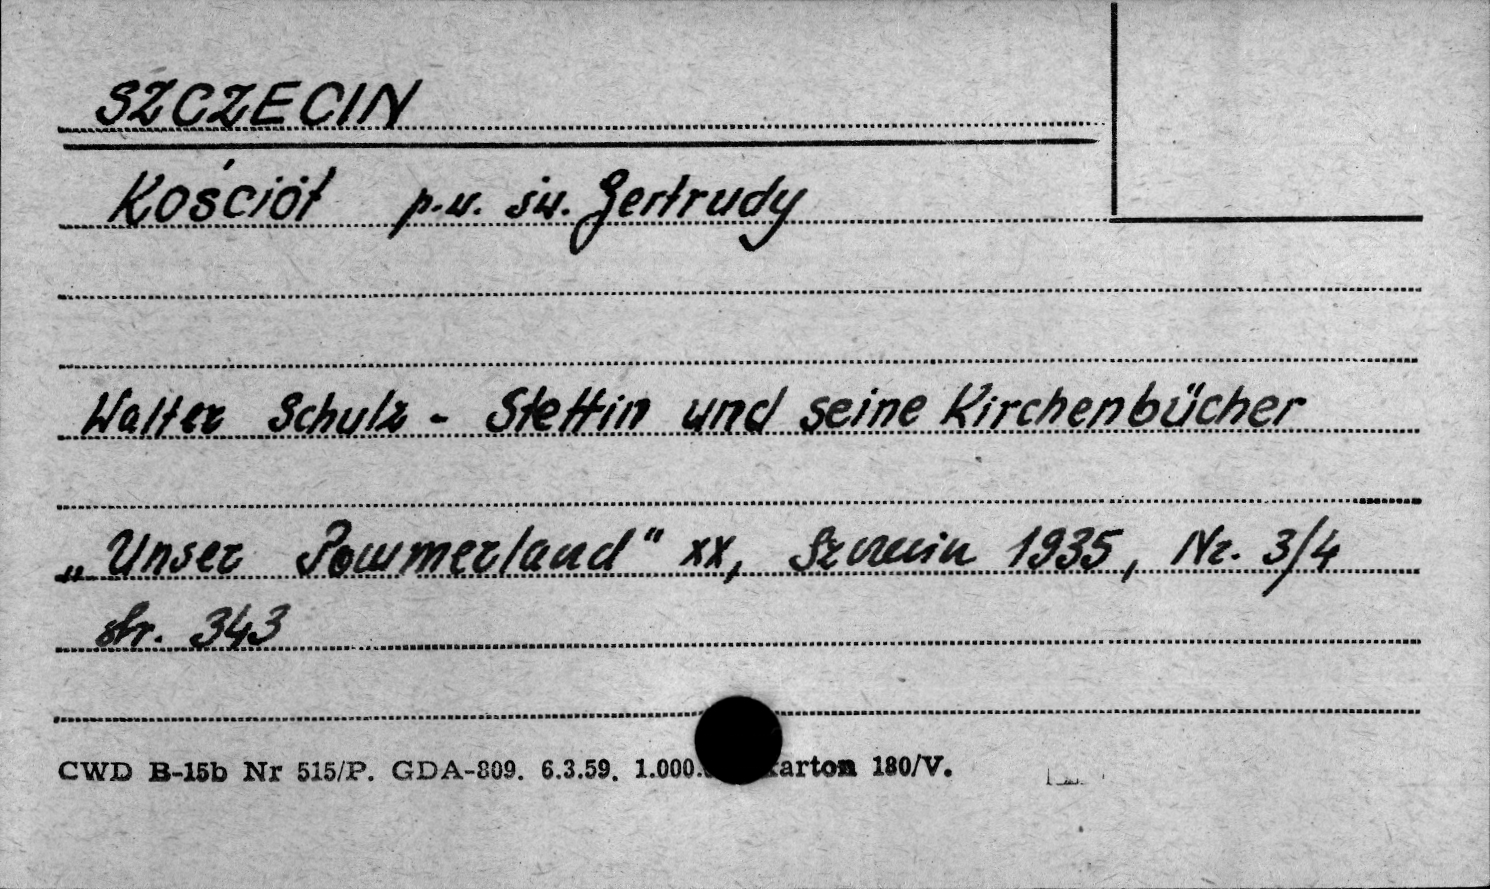 SZCZECIN
Kościół p.w. św. Gertrudy
Walter Schulz - Stettin und seine Kirchenbücher
„Unser Pommerland" XX, Szczecin 1935, Nr. 3/4
str. 343
CWD B-15b Nr 515/P. GDA-809. 6.3.59. 1.000. karton 180/V.